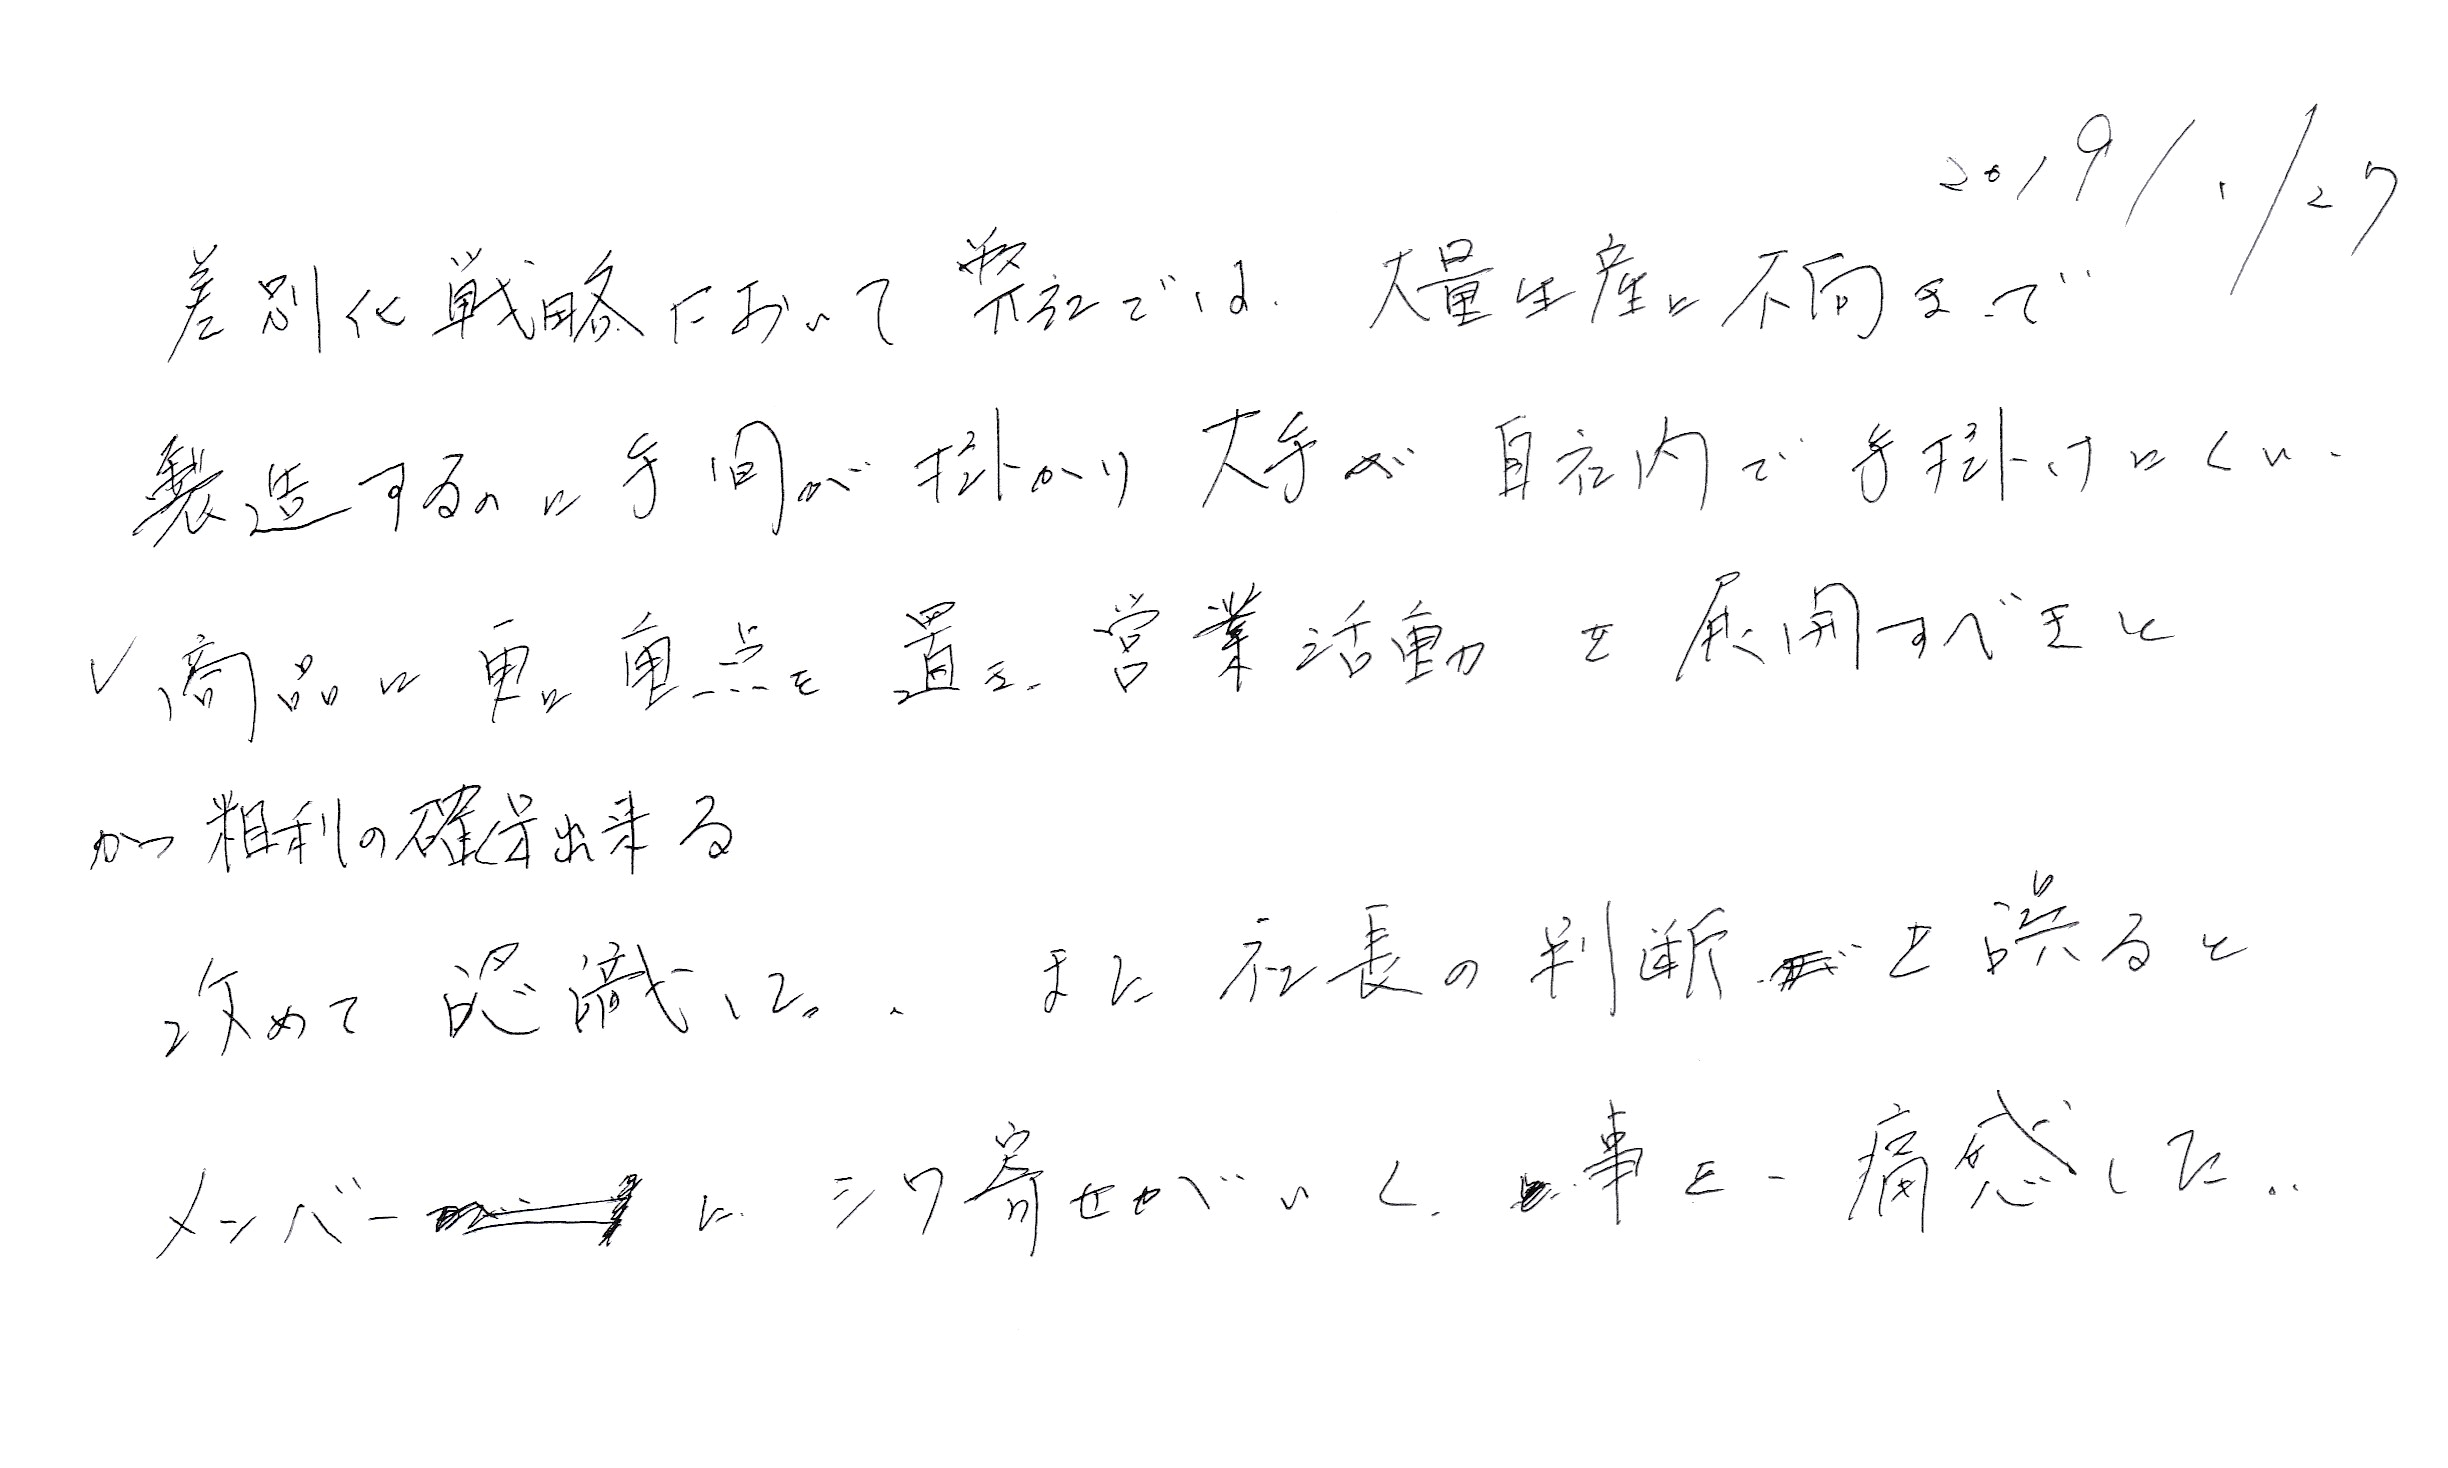 2019/1/27
差別化戦略において弊社では、大量生産に不向きで
製造するのに手間が掛かり大手が自社内で手掛けにくい、
✓商品に更に重点を置き、営業活動を展開すべきと
かつ粗利の確保出来る
改めて認識した。また社長の判断を誤ると
メンバーにシワ寄せがいく、事を痛感した。